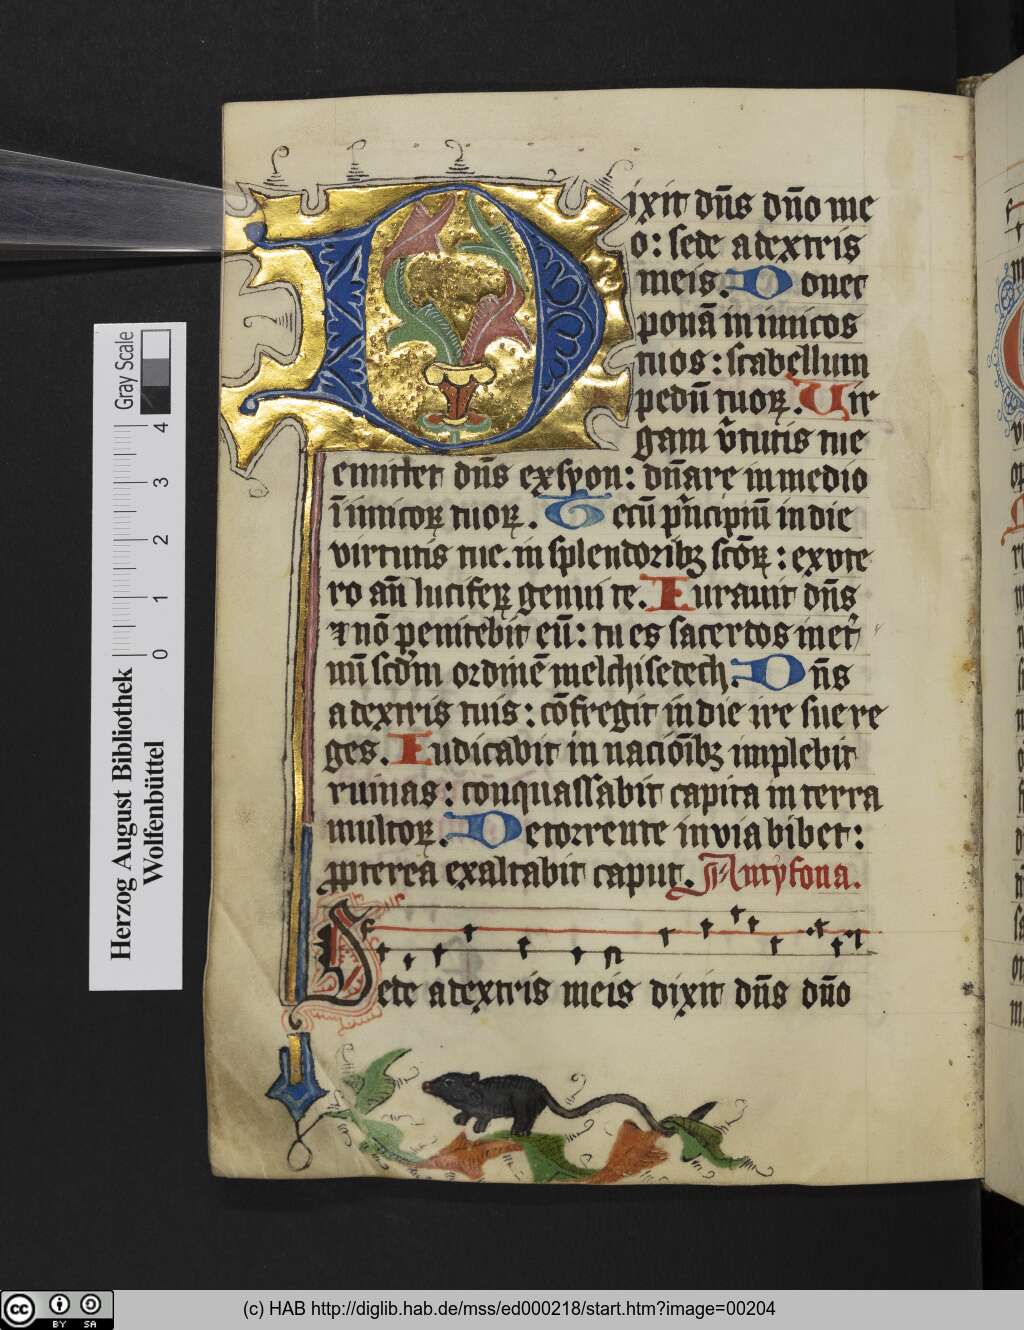 Dixit dn̄s dn̄o me
o: sede adextris
meis. Donec
ponā inimicos
tuos: scabellum
pedū tuoꝝ. Uir
gam v̄tutis tue
emittet dn̄s exsyon: dn̄are inmedio
īnimicoꝝ tuoꝝ. Tecū pͥncipiū indie
virtutis tue. in splendoribꝫ scōꝝ: exvte
ro an̄ luciferꝝ genui te. Iurauit dn̄s
⁊ nō penitebit eū: tu es sacerdos inet̾
nū scd̄m ordinē melchisedech. Dn̄s
adextris tuis: cōfregit indie ire sue re
ges. Iudicabit in nacionībꝫ implebit
ruinas: conquassabit capita interra
multoꝝ. Detorrente inuia bibet:
ꝓpterea exaltabit caput. Antyfona.
Sede adextris meis dixit dn̄s dn̄o
Gray Scale
0 1 2 3 4
Herzog August Bibliothek
Wolfenbüttel
cc BY SA
(c) HAB http://diglib.hab.de/mss/ed000218/start.htm?image=00204